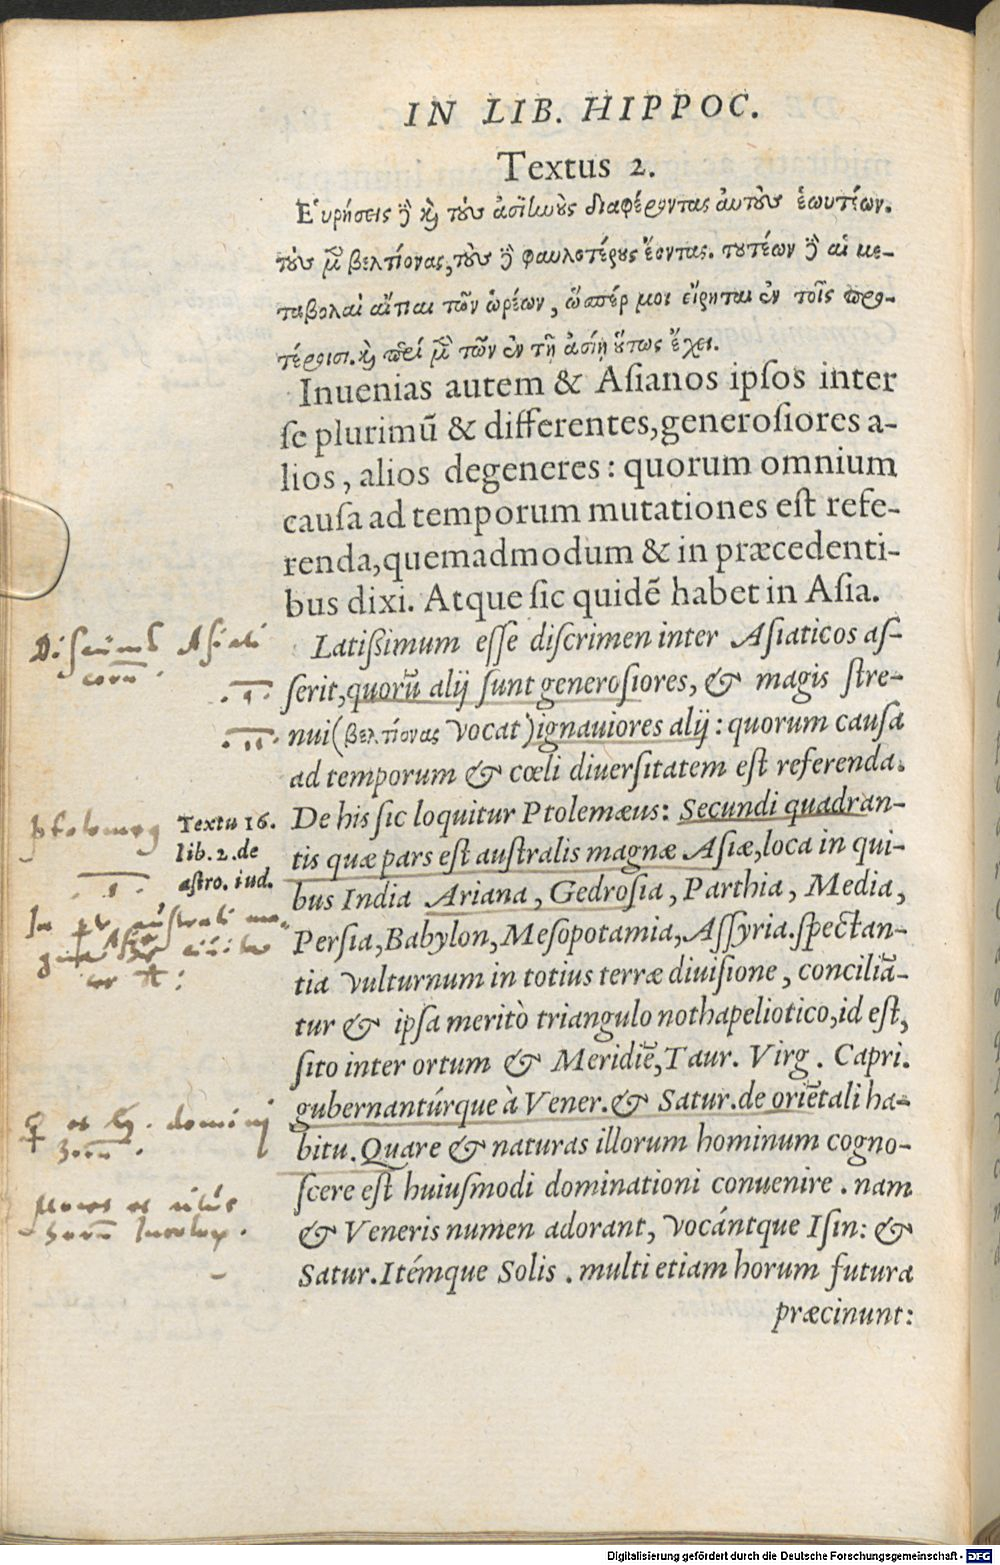 IN LIB. HIPPOC.
Textus 2.
Εὑρήσεις δὲ καὶ τοὺς ἀσιηνοὺς διαφέροντας αὐτοὺς ἑωυτέων.
τοὺς μὲν βελτίονας, τοὺς δὲ φαυλοτέρους ἔοντας. τουτέων δὲ αἱ με-
ταβολαὶ αἴτιαι τῶν ὡρέων, ὥσπερ μοι εἴρηται ἐν τοῖς προ-
τέροισι. καὶ περὶ μὲν τῶν ἐν τῇ ἀσίῃ οὕτως ἔχει.
Inuenias autem & Aſianos ipſos inter
ſe plurimũ & differentes, generoſiores a-
lios, alios degeneres: quorum omnium
cauſa ad temporum mutationes eſt refe-
renda, quemadmodum & in præcedenti-
bus dixi. Atque ſic quidẽ habet in Aſia.
Latiſsimum eſſe diſcrimen inter Aſiaticos aſ-
ſerit, quorũ alij ſunt generoſiores, & magis ſtre-
nui (βελτίονας vocat) ignauiores alij: quorum cauſa
ad temporum & cœli diuerſitatem eſt referenda.
De his ſic loquitur Ptolemæus: Secundi quadran-
tis quæ pars eſt auſtralis magnæ Aſiæ, loca in qui-
bus India Ariana, Gedroſia, Parthia, Media,
Perſia, Babylon, Meſopotamia, Aſſyria. ſpectan-
tia vulturnum in totius terræ diuiſione, conciliā-
tur & ipſa meritò triangulo nothapeliotico, id eſt,
ſito inter ortum & Meridiē, Taur. Virg. Capri.
gubernantúrque à Vener. & Satur. de oriētali ha-
bitu. Quare & naturas illorum hominum cogno-
ſcere eſt huiuſmodi dominationi conuenire. nam
& Veneris numen adorant, vocántque Iſin: &
Satur. Itémque Solis. multi etiam horum futura
præcinunt:
Textu 16.
lib. 2. de
aſtro. iud.
Aſiati
corũ.
.I.
.II.
.I.
In australi ma-
et domini
horũ.
Mores et ritus
horũ
Digitalisierung gefördert durch die Deutsche Forschungsgemeinschaft - DFG